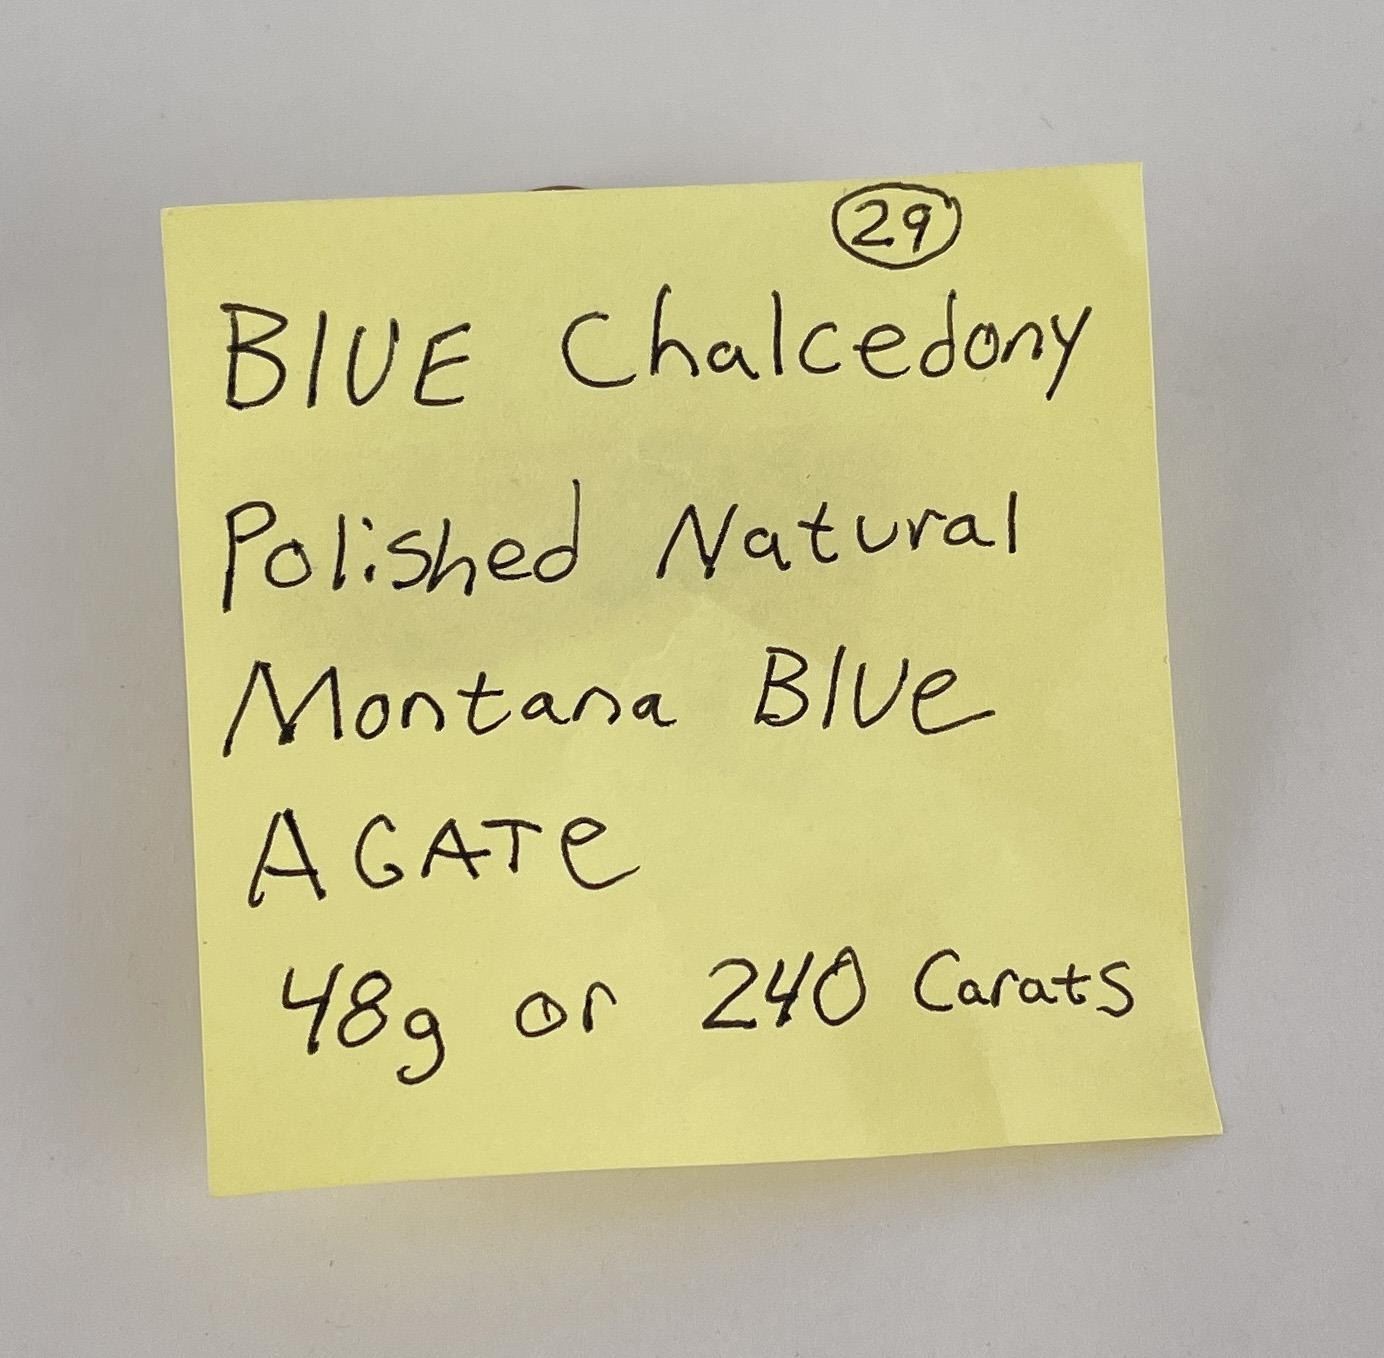 29
BlUE Chalcedony
Polished Natural
Montana Blue
AGATe
48g or 240 Carats